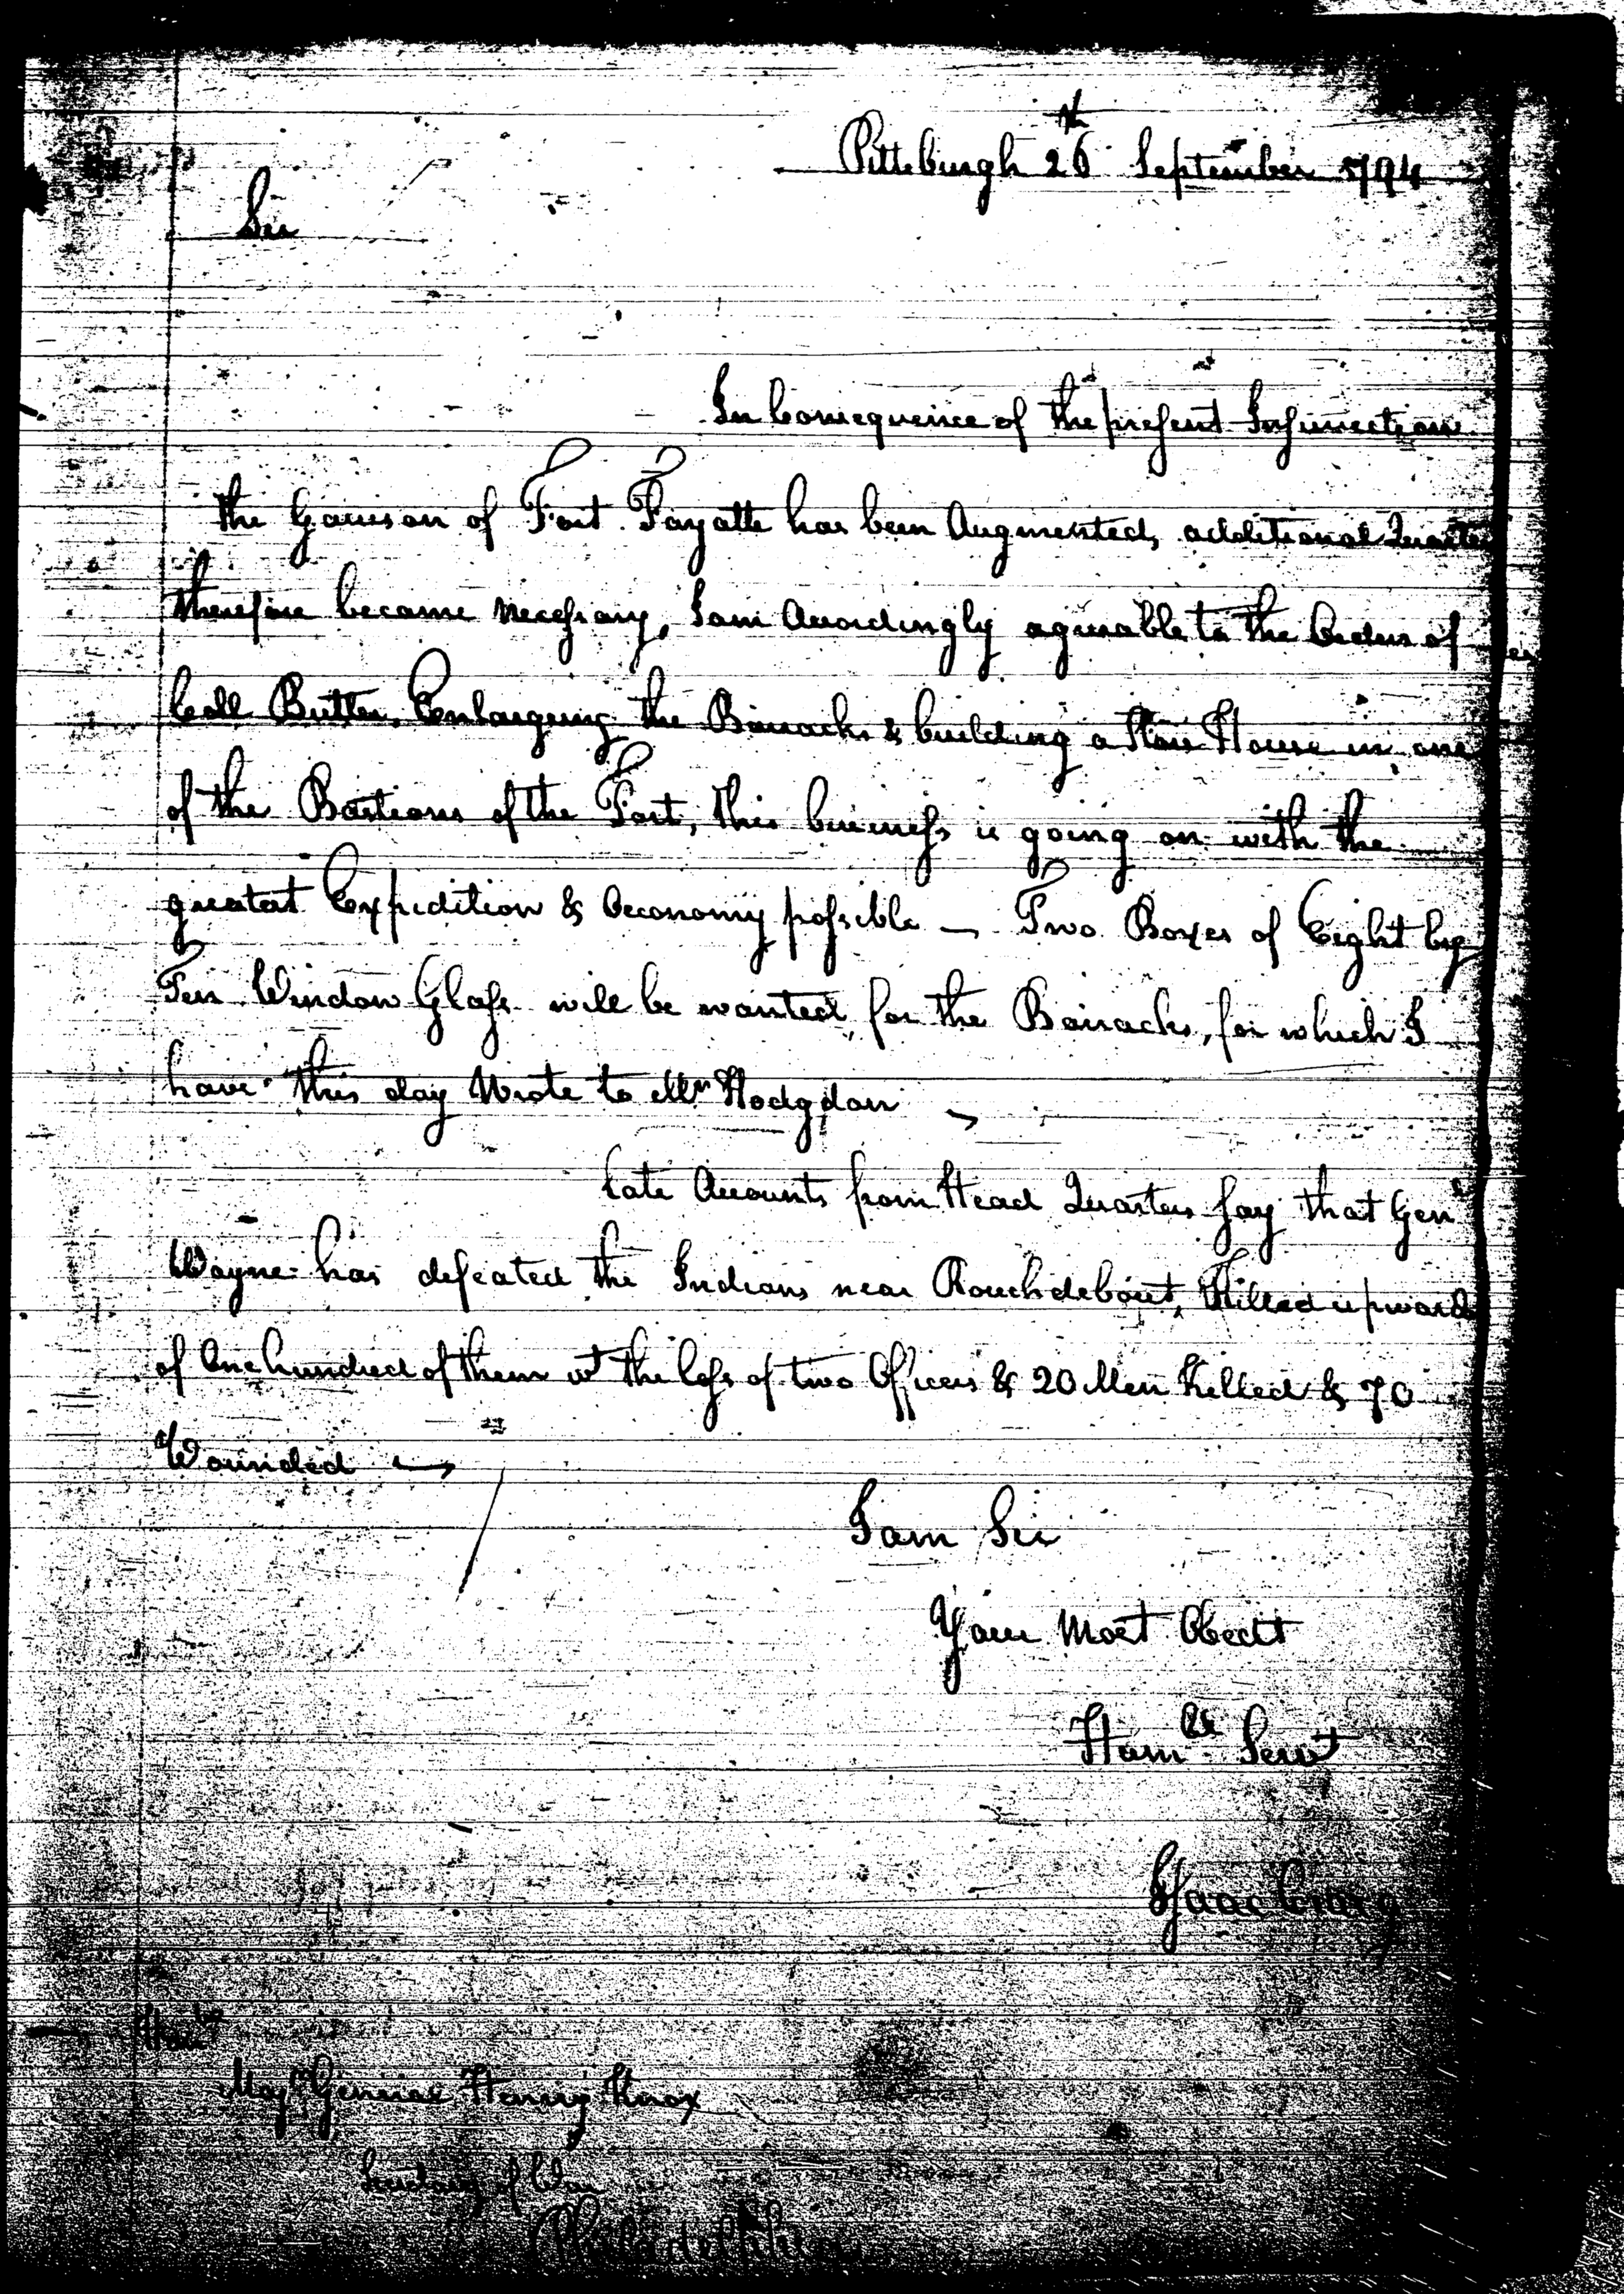 Pittsburgh 26th September 1794
Sir
In Consequence of the present Insurrection
the Garrison of Fort Fayatte has been Augmented, additional Quarters
therefore became Necessary, I am Accordingly agreeable to the Orders of
Coll Butler, Enlarging the Barracks & building a Store House in one
of the Bastions of the Fort, this business is going on with the
greatest Expedition & Oeconomy possible — Two Boxes of Eight by
Ten Window Glass will be wanted for the Barracks, for which I
have this day Wrote to Mr Hodgdon —
Late Accounts from Head Quarters say that Genl
Wayne has defeated the Indians near Rouchdebout, Killed upwards
of One hundred of them wt the loss of two Officers & 20 Men Killed & 70
Wounded —
I am Sir
Your Most Obedt
Humble Servt
Isaac Craig
Honble
Majr General Henry Knox
Secretary of War
Philadelphia